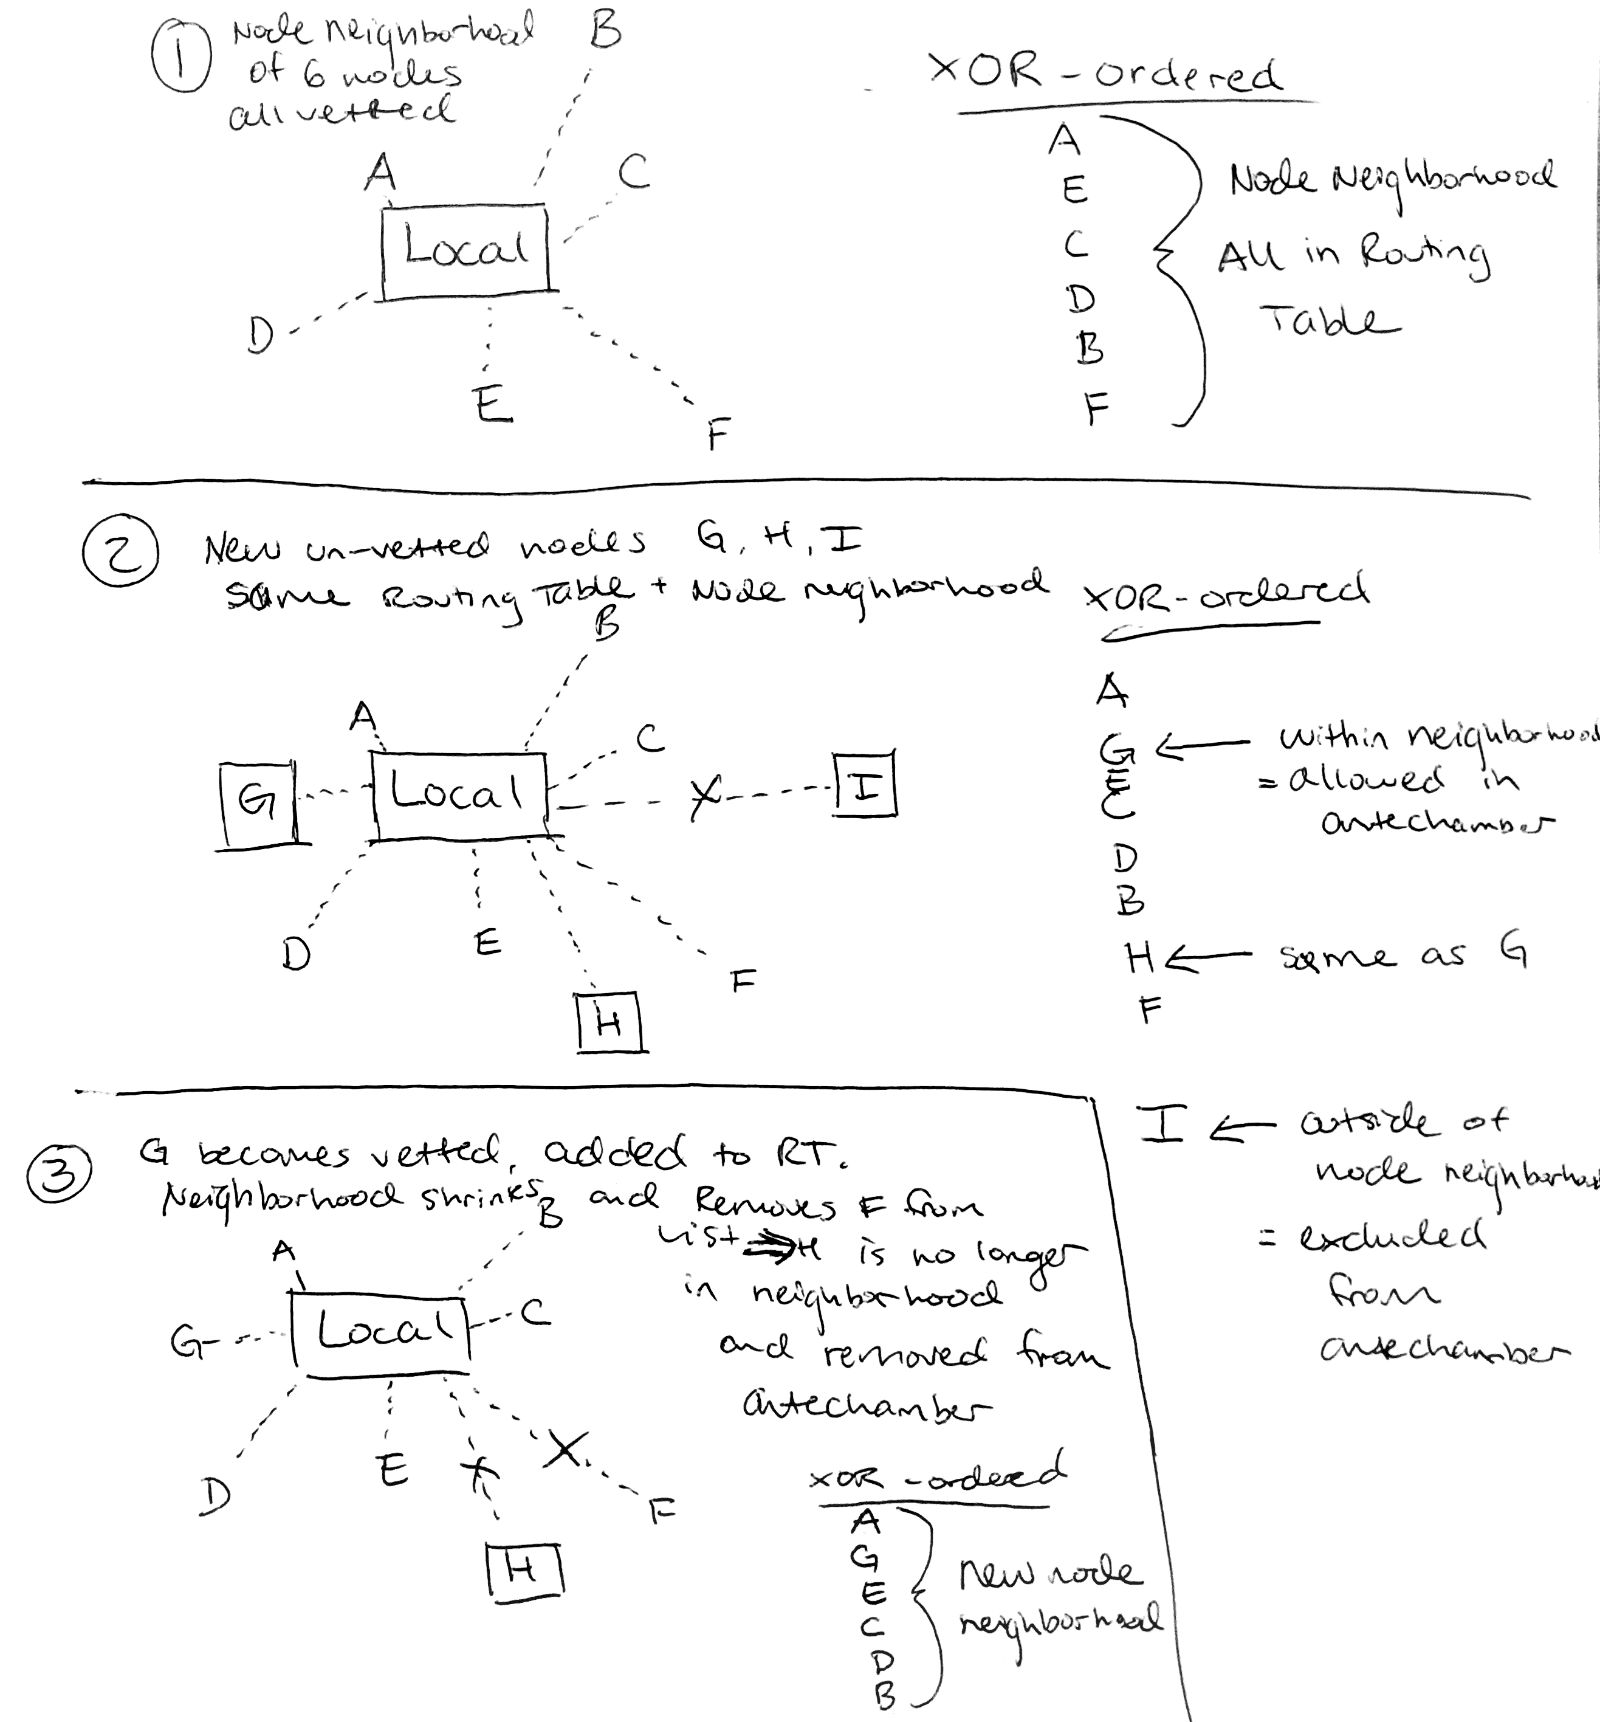 1 Node neighborhood
of 6 nodes
all vetted
B
A
C
Local
D
E
F
XOR-ordered
A
E
C
D
B
F
Node Neighborhood
All in Routing
Table
2 New un-vetted nodes G, H, I
same Routing Table + Node neighborhood
B
A
C
G
Local
X
I
D
E
F
H
XOR-ordered
A
G ← within neighborhood
= allowed in
antechamber
E
C
D
B
H ← same as G
F
I ← outside of
node neighborhood
= excluded
from
antechamber
3 G becomes vetted, added to RT.
Neighborhood shrinks and Removes F from
list ⇒ H is no longer
in neighborhood
and removed from
antechamber
B
A
G
Local
C
D
E
X
X
F
H
XOR-ordered
A
G
E
C
D
B
New node
neighborhood